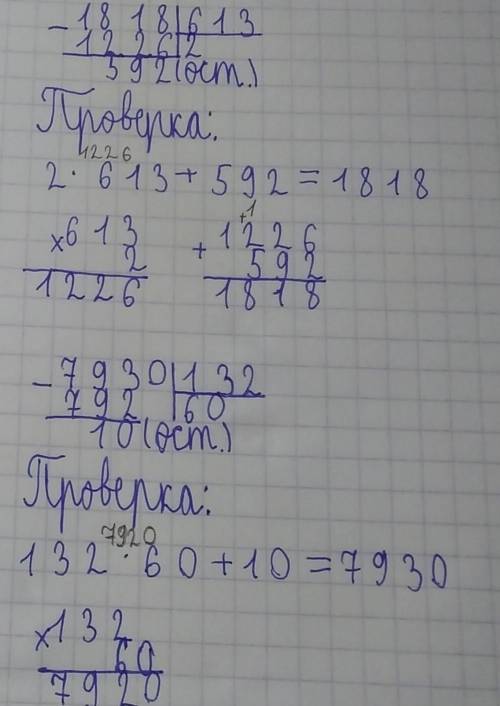 - 1818|613
1226|2
592(ост.)
Проверка:
1226
2 · 613 + 592 = 1818
×613
2
1226
+1
+ 1226
592
1818
- 7930|132
792|60
10(ост.)
Проверка:
7920
132 · 60 + 10 = 7930
×132
60
7920